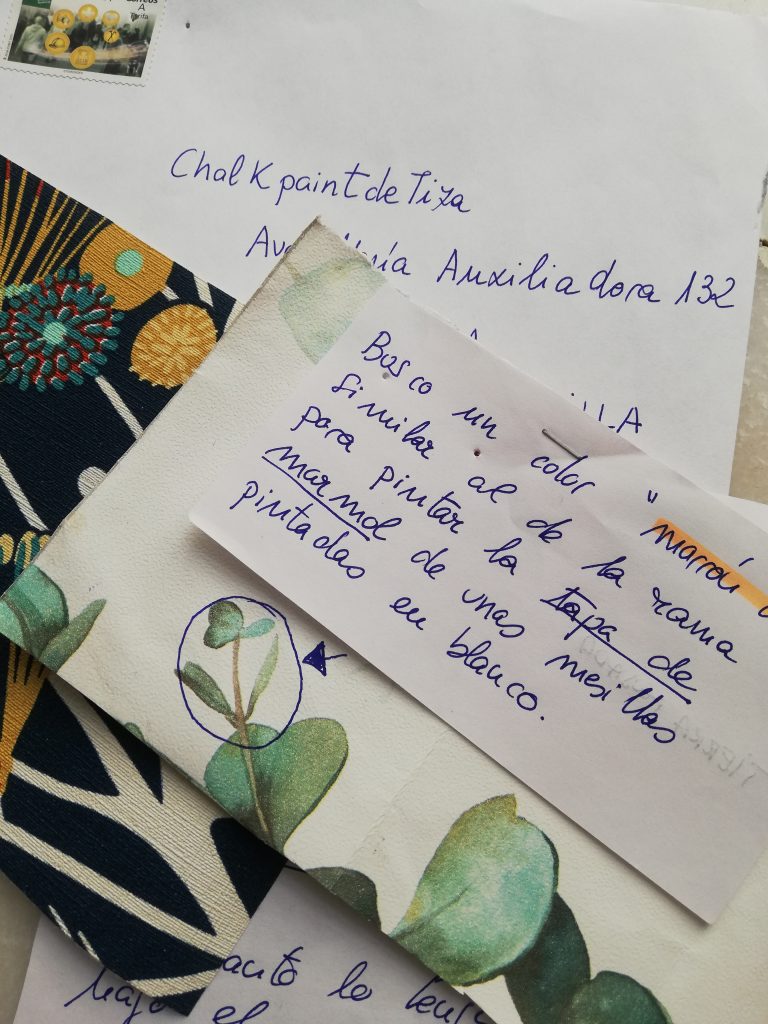 A
Tarifa
Chalk paint de Tiza
María Auxiliadora 132
Busco un color "marrón
similar al de la rama
para pintar la tapa de
marmol de unas mesillas
pintadas en blanco.
TIERRA
lo
el